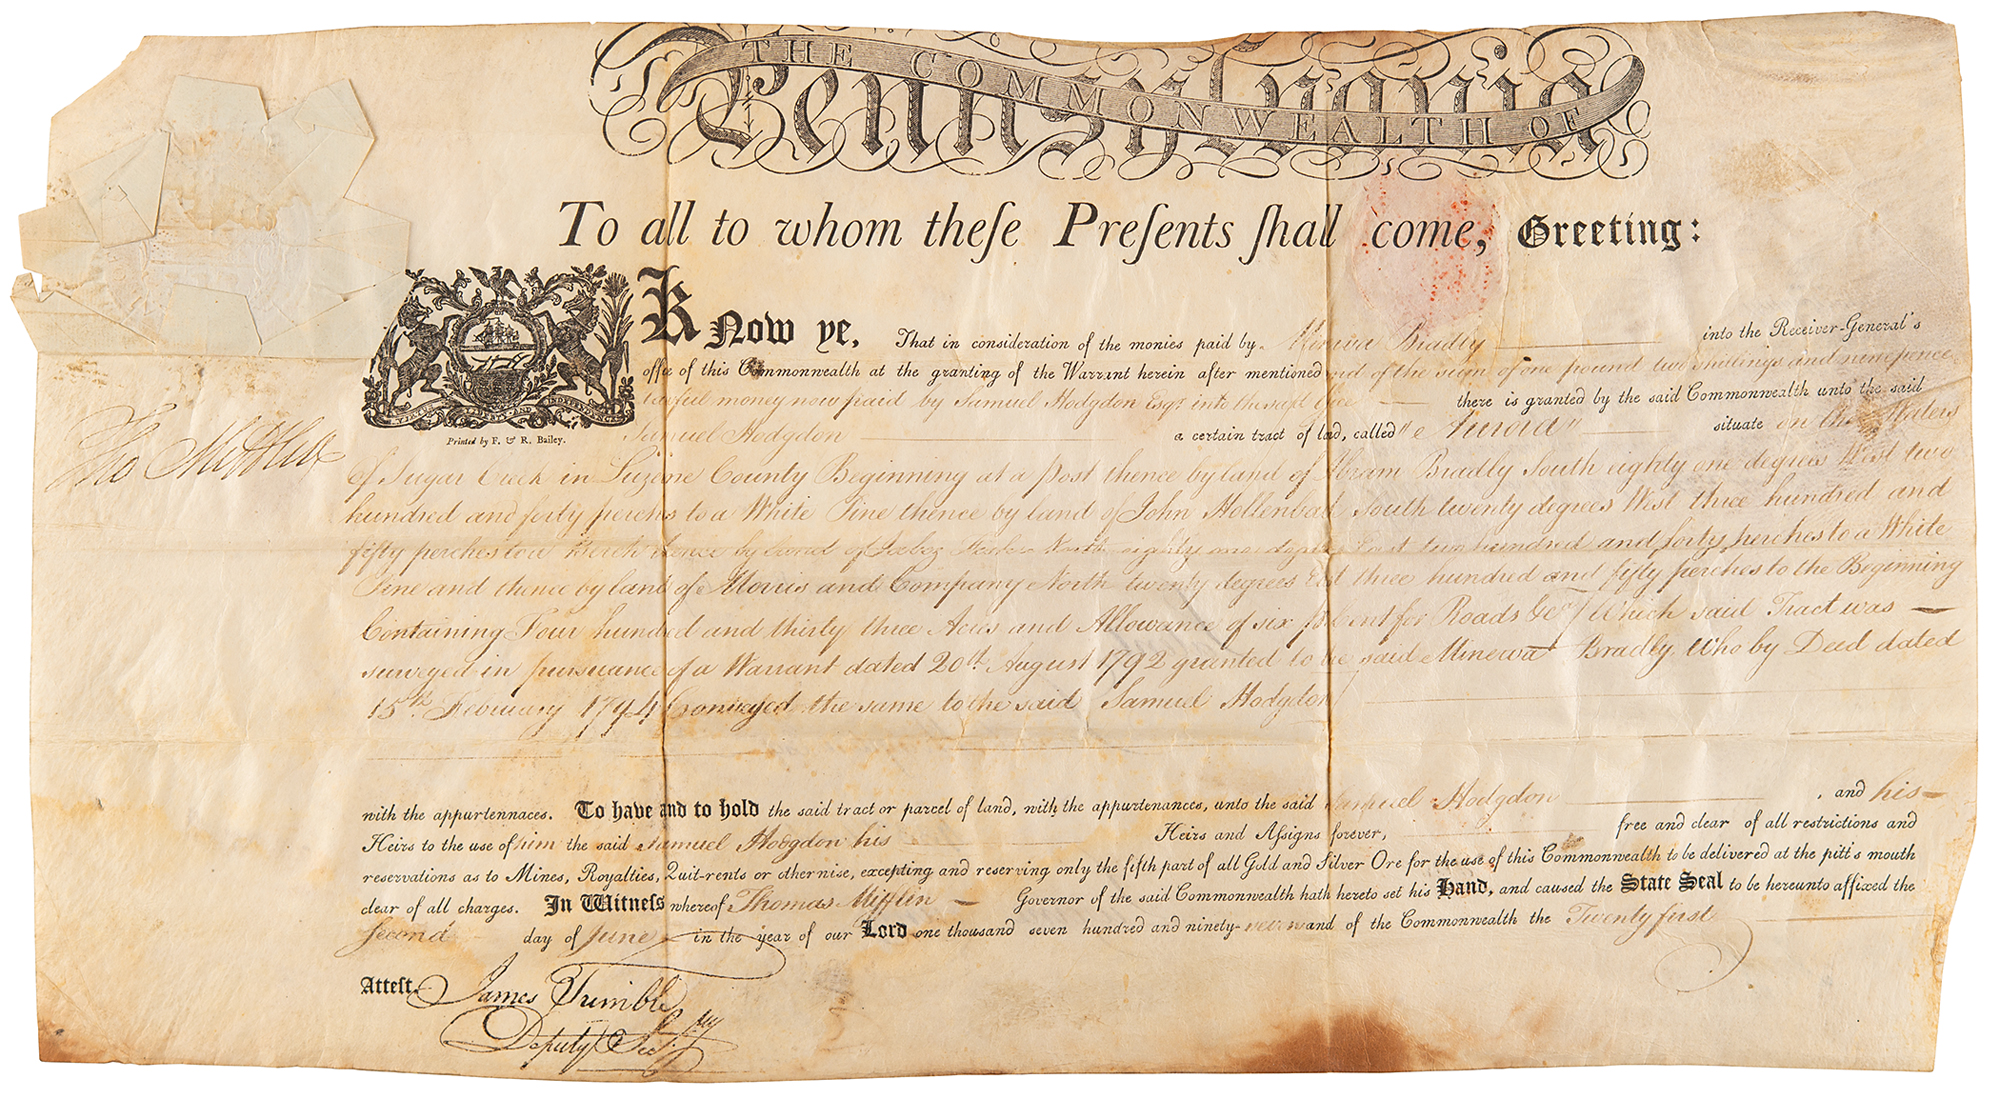 THE COMMONWEALTH OF
Pennsylvania
To all to whom theſe Preſents ſhall come, Greeting:
Know ye, That in consideration of the monies paid by Minerva Bradly into the Receiver-General's
office of this Commonwealth at the granting of the Warrant herein after mentioned and of the sum of one pound two shillings and ninepence
lawful money now paid by Samuel Hodgdon Esqr. into the said Office there is granted by the said Commonwealth unto the said
Printed by F. & R. Bailey.
Samuel Hodgdon a certain tract of land, called "Aurora" situate on the Waters
Tho Mifflin
of Sugar Creek in Luzerne County Beginning at a post thence by land of Abram Bradly South eighty one degrees West two
hundred and forty perches to a White Pine thence by land of John Hollenback South twenty degrees West three hundred and
fifty perches to a Beech thence by land of North eighty one degrees East two hundred and forty perches to a White
Pine and thence by land of Morris and Company North twenty degrees East three hundred and fifty perches to the Beginning
Containing Four hundred and thirty three Acres and Allowance of six pr Cent for Roads &ca / Which said Tract was
surveyed in pursuance of a Warrant dated 20th August 1792 granted to the said Minerva Bradly Who by Deed dated
15th. February 1794 Conveyed the same to the said Samuel Hodgdon
with the appurtennaces. To have and to hold the said tract or parcel of land, with the appurtenances, unto the said Samuel Hodgdon, and his
Heirs to the use of him the said Samuel Hodgdon his Heirs and Aſsigns forever, free and clear of all restrictions and
reservations as to Mines, Royalties, Quit-rents or othernise, excepting and reserving only the fifth part of all Gold and Silver Ore for the use of this Commonwealth to be delivered at the pitt's mouth
clear of all charges. In Witneſs whereof Thomas Mifflin Governor of the said Commonwealth hath hereto set his Hand, and caused the State Seal to be hereunto affixed the
Second day of June in the year of our Lord one thousand seven hundred and ninety-seven and of the Commonwealth the Twenty first
Atteſt. James Trimble
Deputy Secry